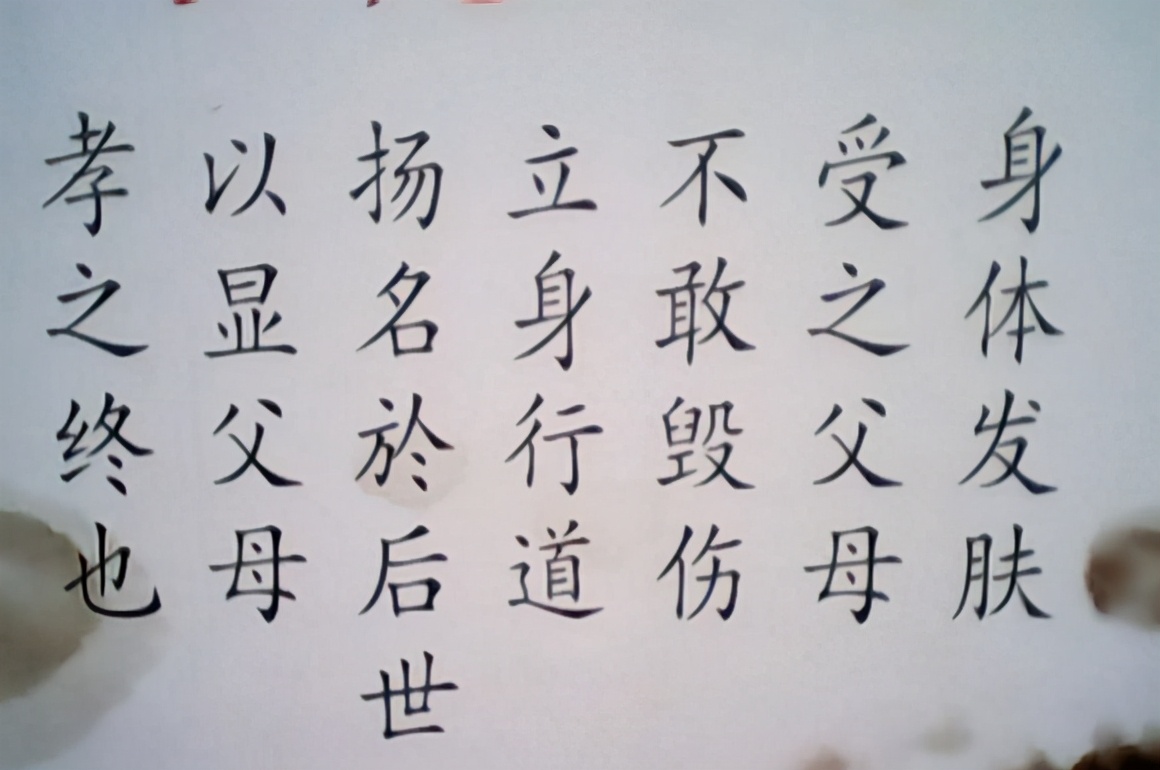 身体发肤
受之父母
不敢毁伤
立身行道
扬名於后世
以显父母
孝之终也